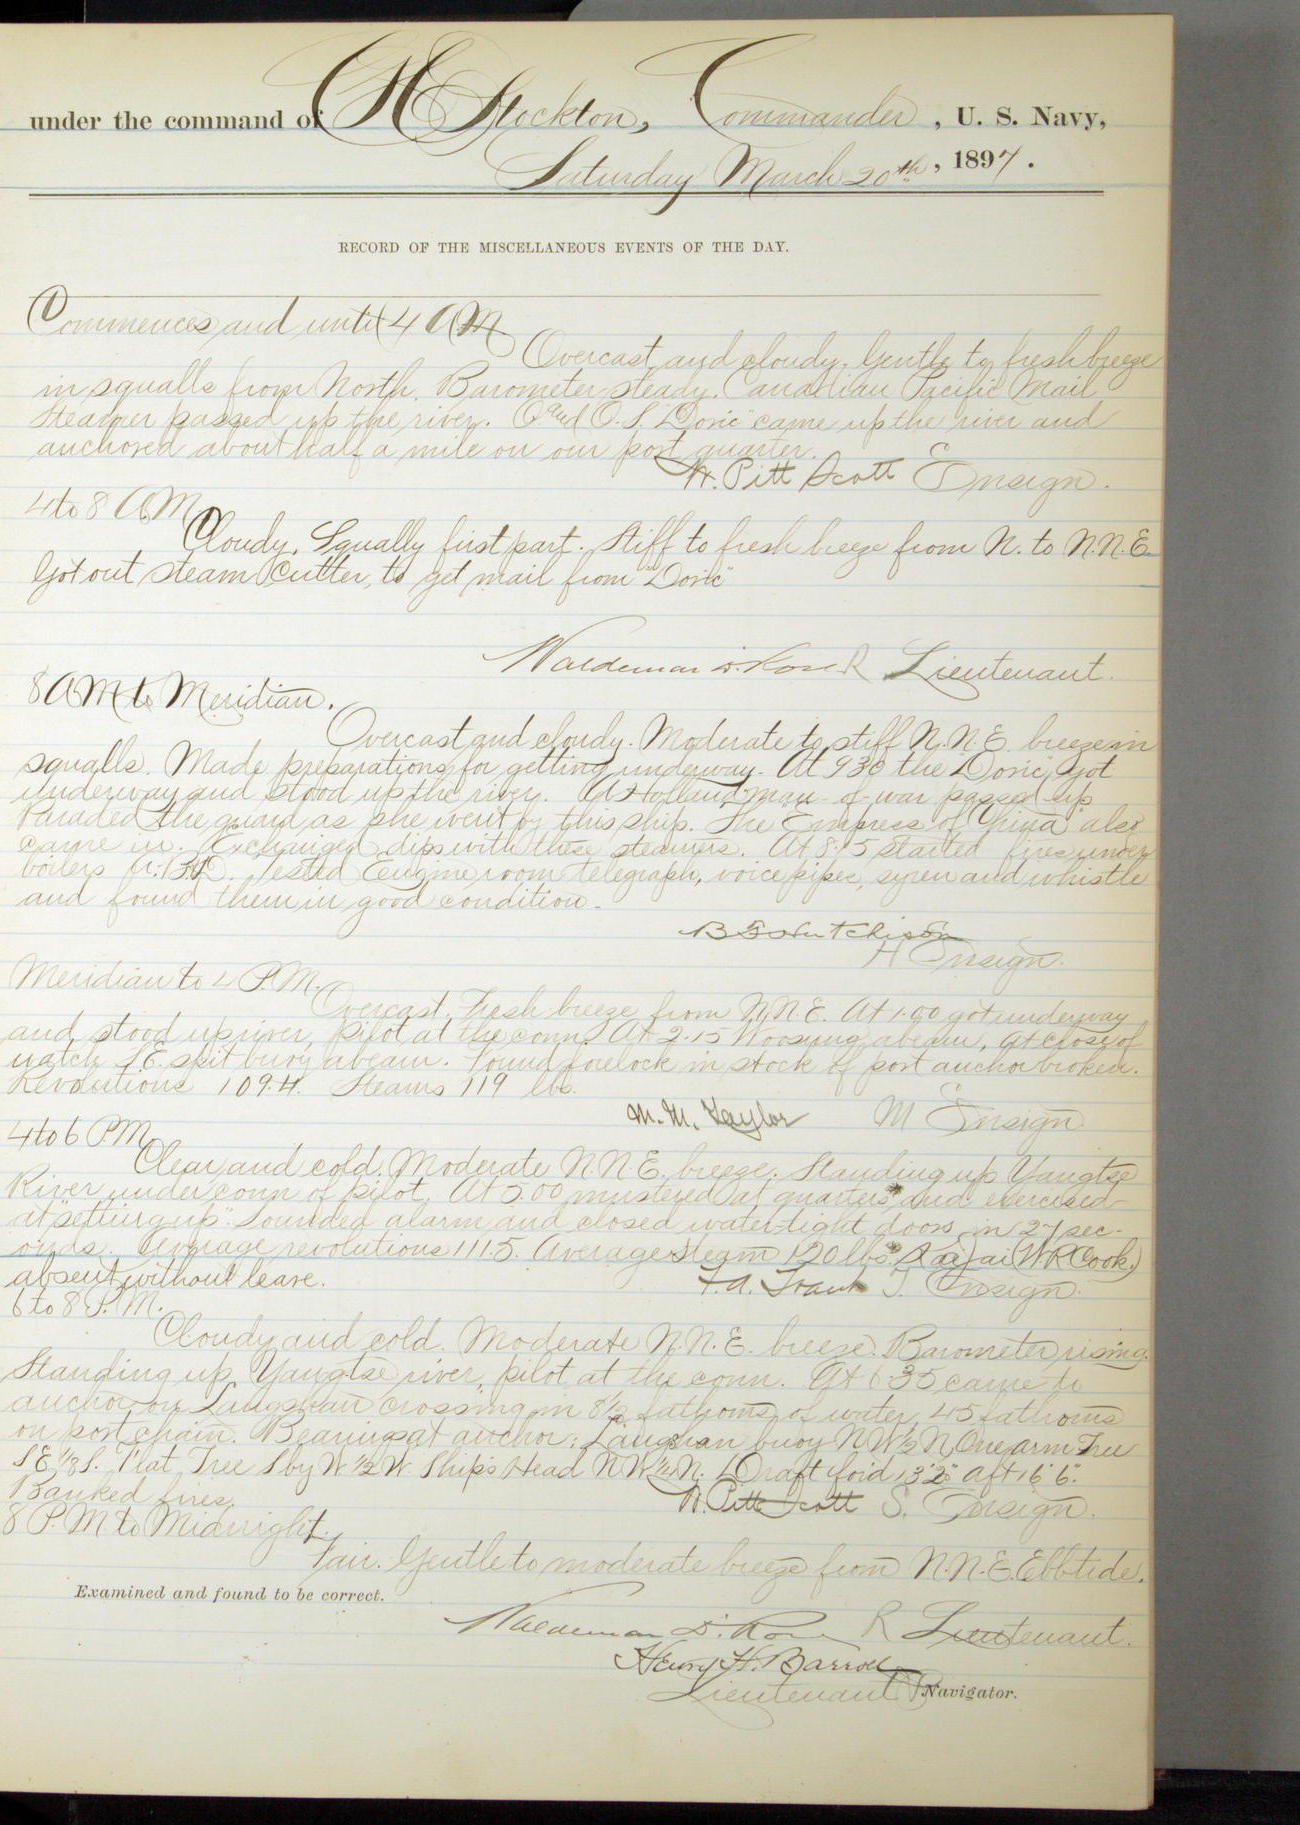 under the command of C H Stockton, Commander, U. S. Navy,
Saturday March 20th, 1897.
RECORD OF THE MISCELLANEOUS EVENTS OF THE DAY.
Commences and until 4 A M
Overcast and cloudy. Gentle to fresh breeze
in squalls from North. Barometer steady. Canadian Pacific Mail
Steamer passed up the river. O and O. S. "Doric" came up the river and
anchored about half a mile on our port quarter.
W. Pitt Scott Ensign.
4 to 8 A M.
Cloudy. Squally first part. Stiff to fresh breeze from N. to N.N.E.
Got out steam cutter, to get mail from "Doric"
Waldemar D. Rose R Lieutenant.
8 A M to Meridian.
Overcast and cloudy. Moderate to stiff N.N.E. breeze in
squalls. Made preparations for getting underway. At 930 the "Doric" got
underway and stood up the river. A Holland man-of-war passed up
Paraded the guard as she went by this ship. The "Empress of China" also
came in. Exchanged dips with these steamers. At 8.15 started fires under
boilers A. Tested Engine room telegraph, voice pipes, syren and whistle
and found them in good condition.
B F Hutchison
H Ensign.
Meridian to 4 P.M.
Overcast. Fresh breeze from N.N.E. At 1.00 got underway
and stood up river, pilot at the conn. At 2.15 Woosung abeam, at close of
watch S.E. spit buoy abeam. Found forelock in stock of port anchor broken.
Revolutions 109.4. Steam 119 lbs.
M. M. Taylor M Ensign
4 to 6 P M.
Clear and cold. Moderate N.N.E. breeze. Standing up Yangtse
River under conn of pilot. At 5.00 mustered at quarters and exercised
at "setting up". Sounded alarm and closed water-tight doors in 27 sec-
onds. Average revolutions 111.5. Average steam 120 lbs. (W.R. Cook.)
absent without leave.
F. A. Traut T. Ensign.
6 to 8 P. M.
Cloudy and cold. Moderate N.N.E. breeze. Barometer rising.
Standing up Yangtse river, pilot at the conn. At 6.35 came to
anchor on Langshan crossing in 8½ fathoms of water, 45 fathoms
on port chain. Bearings at anchor: Langshan buoy N W ½ N, One arm Tree
S E ⅛ S. Flat Tree S by W ½ W. Ship's Head N W N. Draft for'd 13' 2" aft 16' 6".
Banked fires.
W. Pitt Scott S. Ensign.
8 P. M to Midnight.
Fair. Gentle to moderate breeze from N.N.E. Ebb tide.
Examined and found to be correct.
Waldemar D. Rose R Lieutenant.
Henry H. Barroll
Lieutenant Navigator.